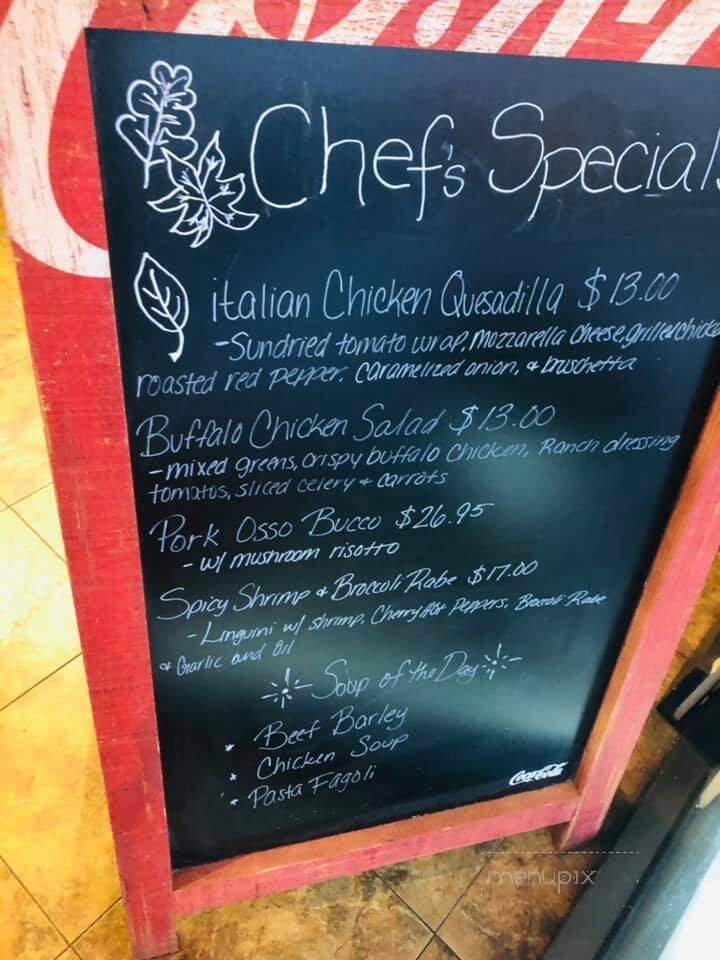 Chef's Specials
italian Chicken Quesadilla $13.00
-Sundried tomato wrap, mozzarella cheese, grilled chicken
roasted red pepper, caramelized onion, & bruschetta
Buffalo Chicken Salad $13.00
-mixed greens, crispy buffalo chicken, Ranch dressing
tomatos, sliced celery & carrots
Pork Osso Bucco $26.95
- w/ mushroom risotto
Spicy Shrimp & Broccoli Rabe $17.00
- Linguini w/ shrimp, Cherry Hot Peppers, Broccoli Rabe
& Garlic and Oil
Soup of the Day
* Beef Barley
* Chicken Soup
* Pasta Fagoli
Coca-Cola
menupix